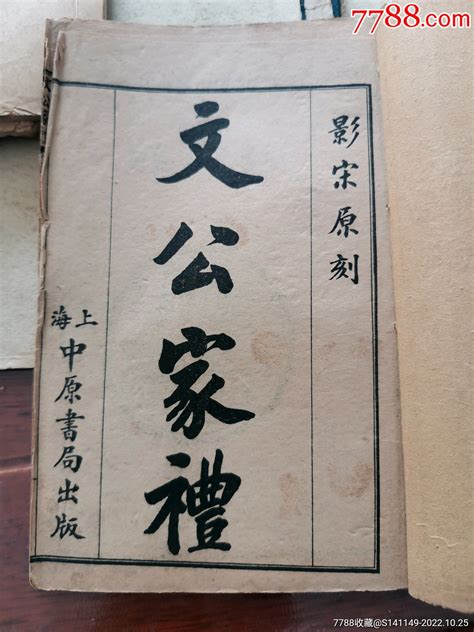 7788.com
影宋原刻
文公家禮
上海
中原書局出版
7788收藏@S141149-2022.10.25